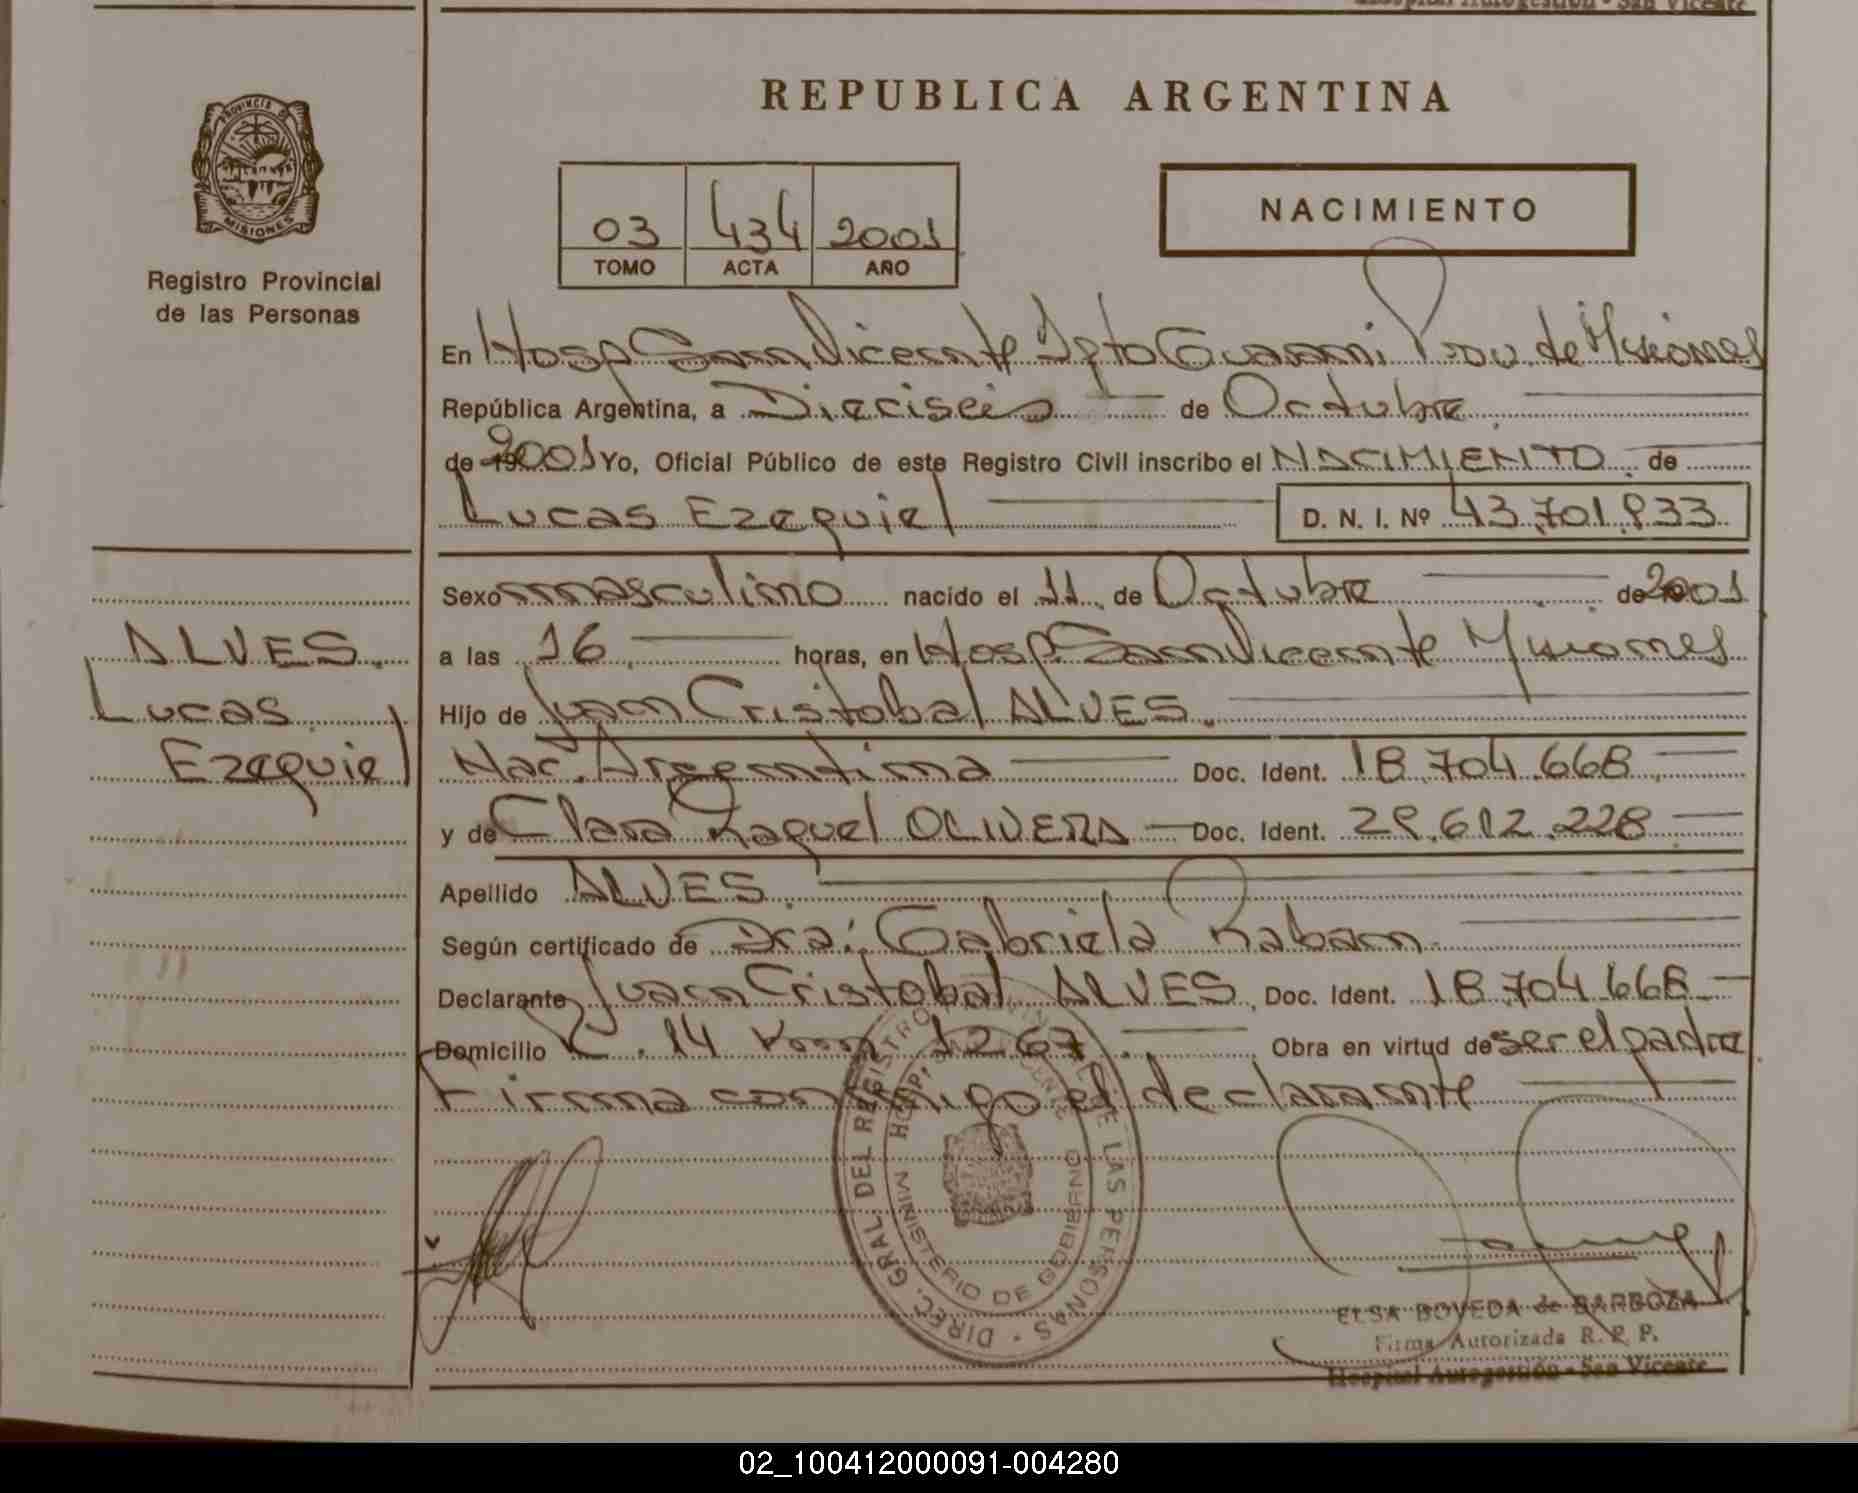 REPUBLICA ARGENTINA
PROVINCIA DE MISIONES
Registro Provincial
de las Personas
03 434 2001
TOMO ACTA AÑO
NACIMIENTO
En Hosp San Vicente Dpto Guarani Prov. de Misiones
República Argentina, a Dieciseis de Octubre
de 2001 Yo, Oficial Público de este Registro Civil inscribo el NACIMIENTO de
Lucas Ezequiel D. N. I. Nº 43.701.933
Sexo masculino nacido el 11 de Octubre de 2001
a las 16 horas, en Hosp. San Vicente Misiones
Hijo de Juan Cristobal ALVES.
Nac. Argentina Doc. Ident. 18.704.668
y de Clara Raquel OLIVERA Doc. Ident. 29.612.228
Apellido ALVES.
Según certificado de Dra: Gabriela Raban
Declarante Juan Cristobal ALVES, Doc. Ident. 18.704.668
Domicilio C. 14 Km 1267 Obra en virtud de ser el padre
Firma conmigo el declarante
ALVES.
Lucas
Ezequiel
DIREC. GRAL. DEL REGISTRO PROVINCIAL DE LAS PERSONAS
HOSP. SAN VICENTE
MINISTERIO DE GOBIERNO
ELSA BOVEDA de BARBOZA
Firma Autorizada R. P. P.
Hospital Autogestión - San Vicente
02_100412000091-004280